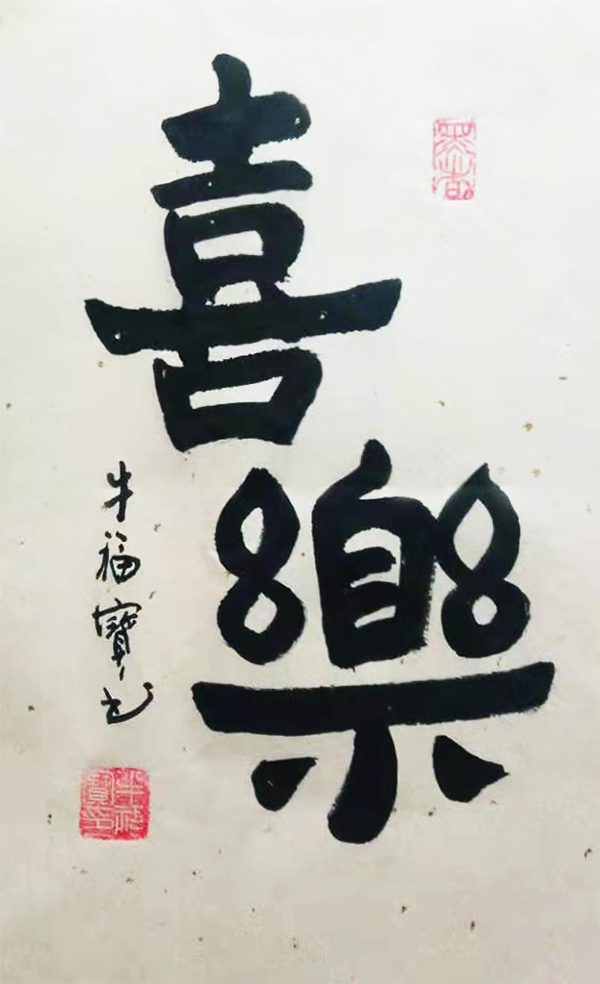 喜樂
牛福寳书